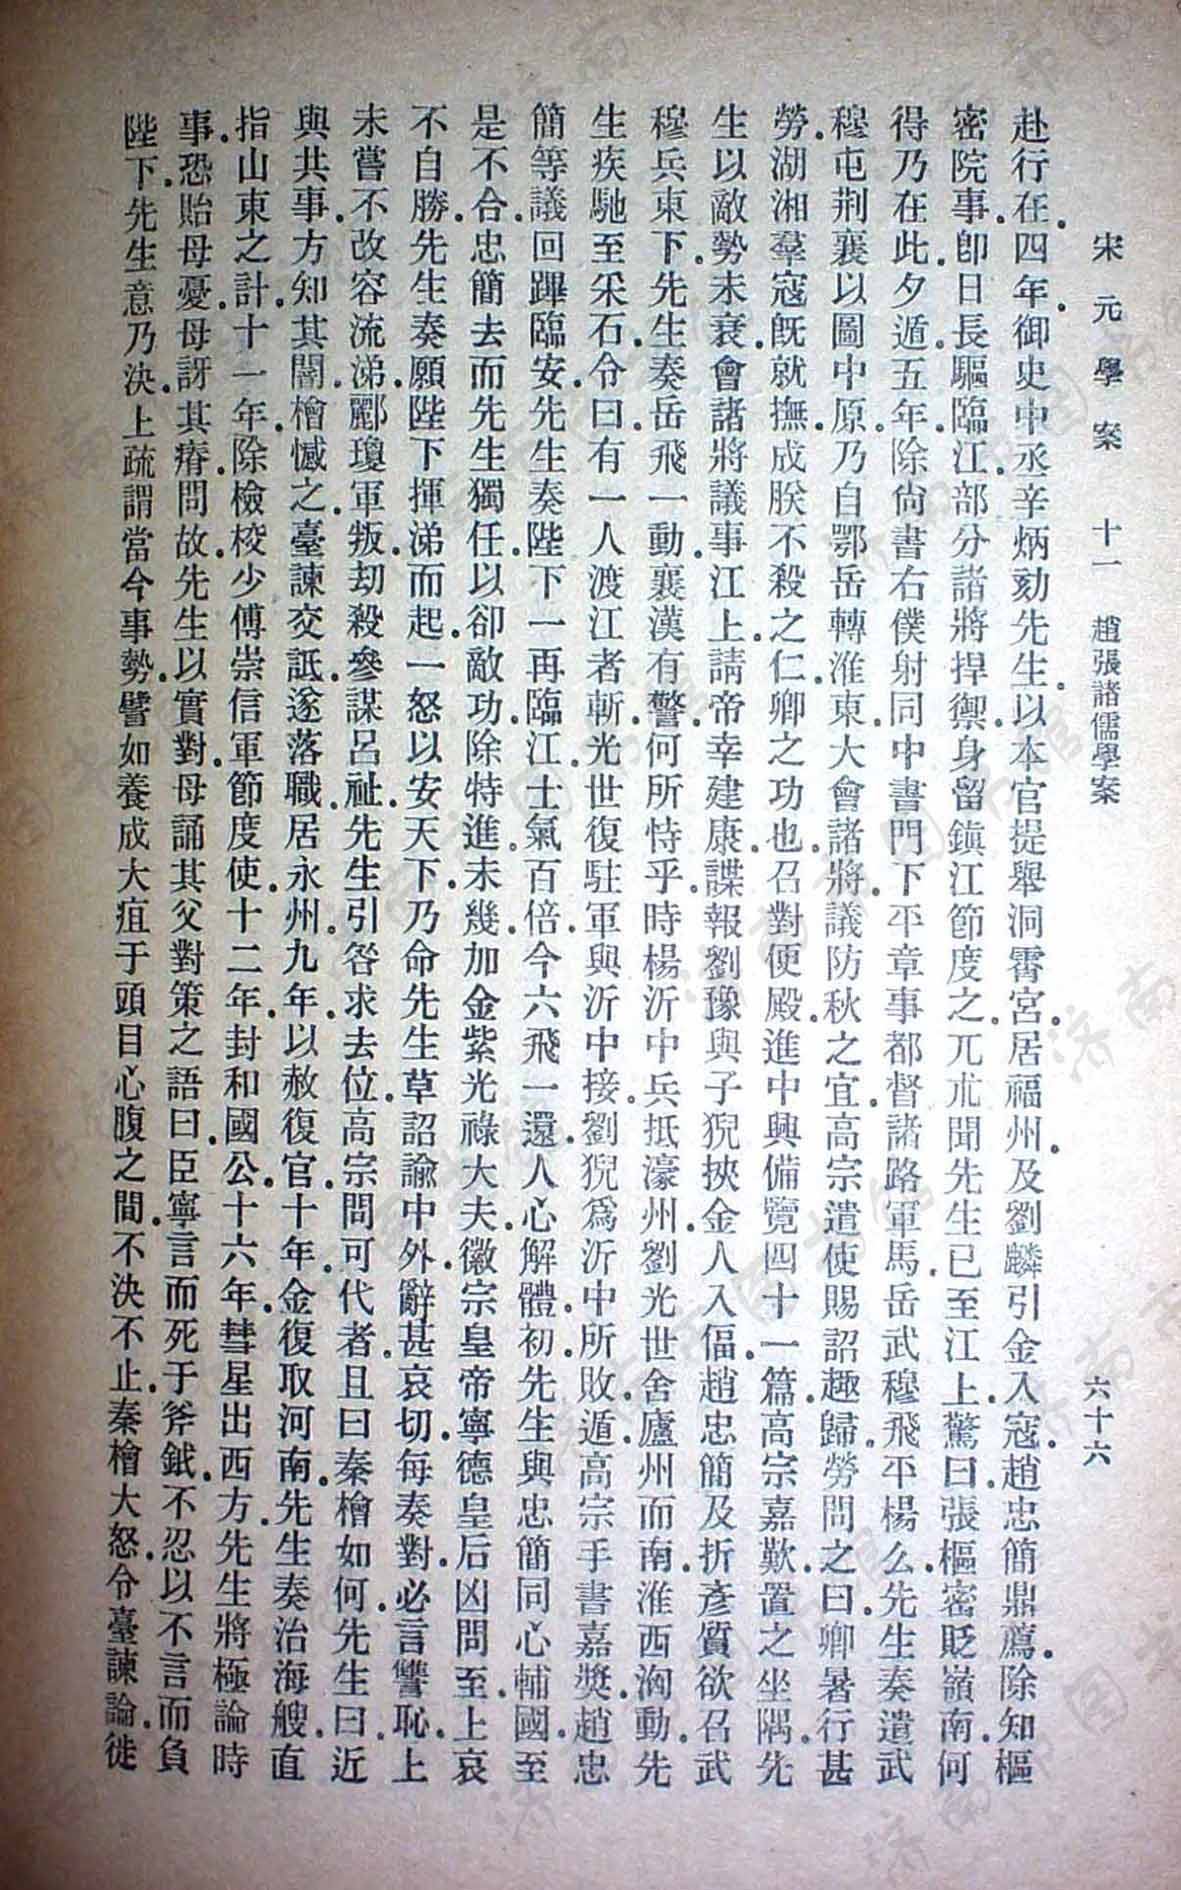 宋元學案 十一 趙張諸儒學案 六十六
赴行在.四年.御史中丞辛炳劾先生.以本官提舉洞霄宮.居福州.及劉麟引金入寇.趙忠簡鼎薦.除知樞
密院事.卽日長驅臨江.部分諸將捍禦.身留鎮江節度之.兀朮聞先生已至江上.驚曰.張樞密貶嶺南.何
得乃在此.夕遁.五年.除尙書右僕射同中書門下平章事都督諸路軍馬.岳武穆飛平楊么.先生奏遣武
穆屯荆襄以圖中原.乃自鄂岳轉淮東.大會諸將.議防秋之宜.高宗遣使賜詔趣歸.勞問之曰.卿暑行甚
勞.湖湘羣寇旣就撫.成朕不殺之仁.卿之功也.召對便殿.進中興備覽四十一篇.高宗嘉歎.置之坐隅.先
生以敵勢未衰.會諸將議事江上.請帝幸建康.諜報劉豫與子猊挾金人入偪.趙忠簡及折彥質欲召武
穆兵東下.先生奏.岳飛一動.襄漢有警.何所恃乎.時楊沂中兵抵濠州.劉光世舍廬州而南.淮西洶動.先
生疾馳至采石.令曰.有一人渡江者斬.光世復駐軍與沂中接.劉猊爲沂中所敗.遁.高宗手書嘉奬.趙忠
簡等議回蹕臨安.先生奏.陛下一再臨江.士氣百倍.今六飛一還.人心解體.初.先生與忠簡同心輔國.至
是不合.忠簡去而先生獨任.以卻敵功.除特進.未幾.加金紫光祿大夫.徽宗皇帝寧德皇后凶問至.上哀
不自勝.先生奏.願陛下揮涕而起.一怒以安天下.乃命先生草詔諭中外.辭甚哀切.每奏對.必言讐恥.上
未嘗不改容流涕.酈瓊軍叛.刧殺參謀呂祉.先生引咎求去位.高宗問可代者.且曰.秦檜如何.先生曰.近
與共事.方知其闇.檜憾之.臺諫交詆.遂落職.居永州.九年.以赦復官.十年.金復取河南.先生奏治海艘.直
指山東之計.十一年.除檢校少傅崇信軍節度使.十二年.封和國公.十六年.彗星出西方.先生將極論時
事.恐貽母憂.母訝其瘠.問故.先生以實對.母誦其父對策之語曰.臣寧言而死于斧鉞.不忍以不言而負
陛下.先生意乃決.上疏謂當今事勢.譬如養成大疽于頭目心腹之間.不決不止.秦檜大怒.令臺諫論.徙